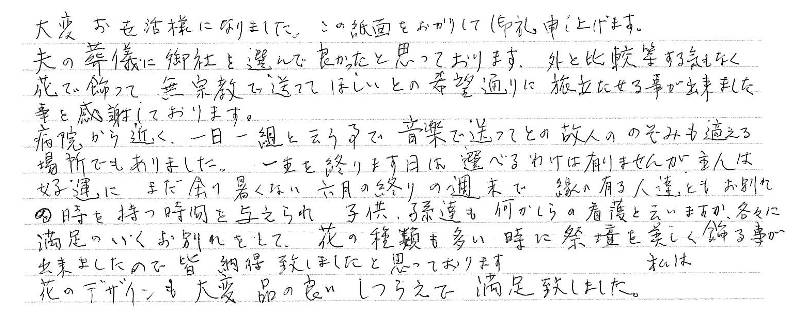 大変お世話様になりました。この紙面をおかりして御礼申し上げます。
夫の葬儀に御社を選んで良かったと思っております。外と比較等する気もなく
花で飾って 無宗教で送ってほしいとの希望通りに 旅立たせる事が出来ました
事を感謝しております。
病院から近く、一日一組と云う事で 音楽で送ってとの故人ののぞみも適える
場所でもありました。 一生を終ります日は 選べるわけは有りませんが 主人は
好運に まだ余り暑くない 六月の終りの週末で 縁の有る人達ともお別れ
の時を持つ時間を与えられ 子供、孫達も何かしらの看護と云いますか、各々に
満足のいくお別れをして、花の種類も多い時に祭壇を美しく飾る事が
出来ましたので皆 納得致しましたと思っております
私は
花のデザインも大変品の良いしつらえで 満足致しました。